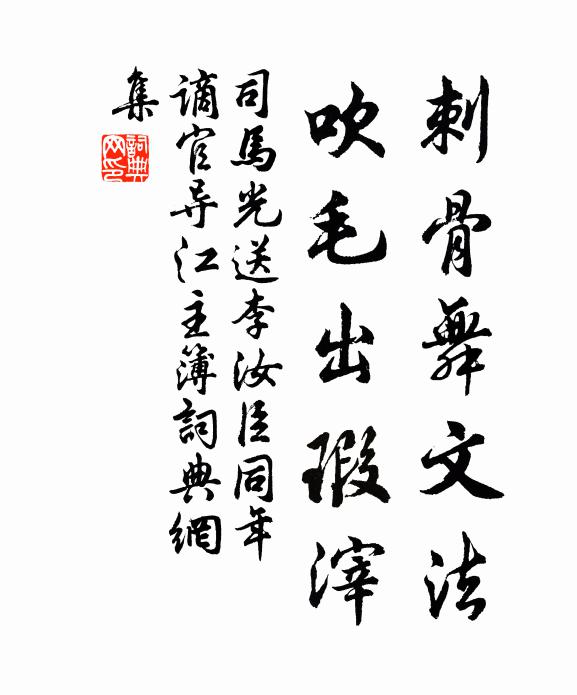 刺骨舞文法
吹毛出瑕滓
司馬光送李汝臣同年
谪官导江主簿詞典網
集
詞典网印